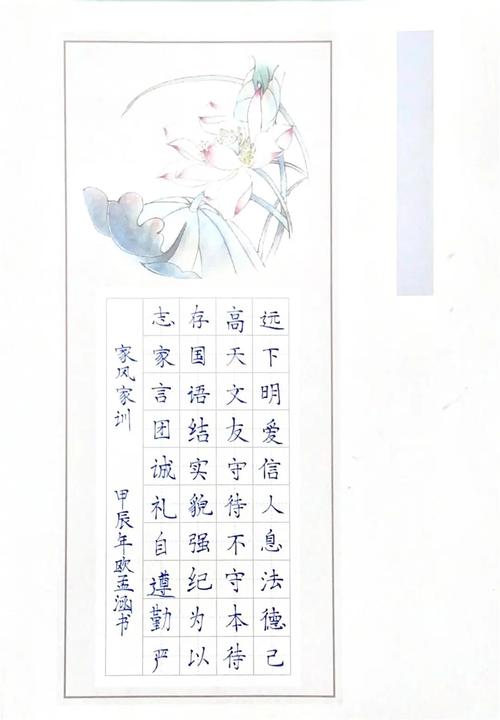 家风家训
志存高远
家国天下
言语文明
团结友爱
诚实守信
礼貌待人
自强不息
遵纪守法
勤为本德
严以待己
甲辰年欧孟涵书